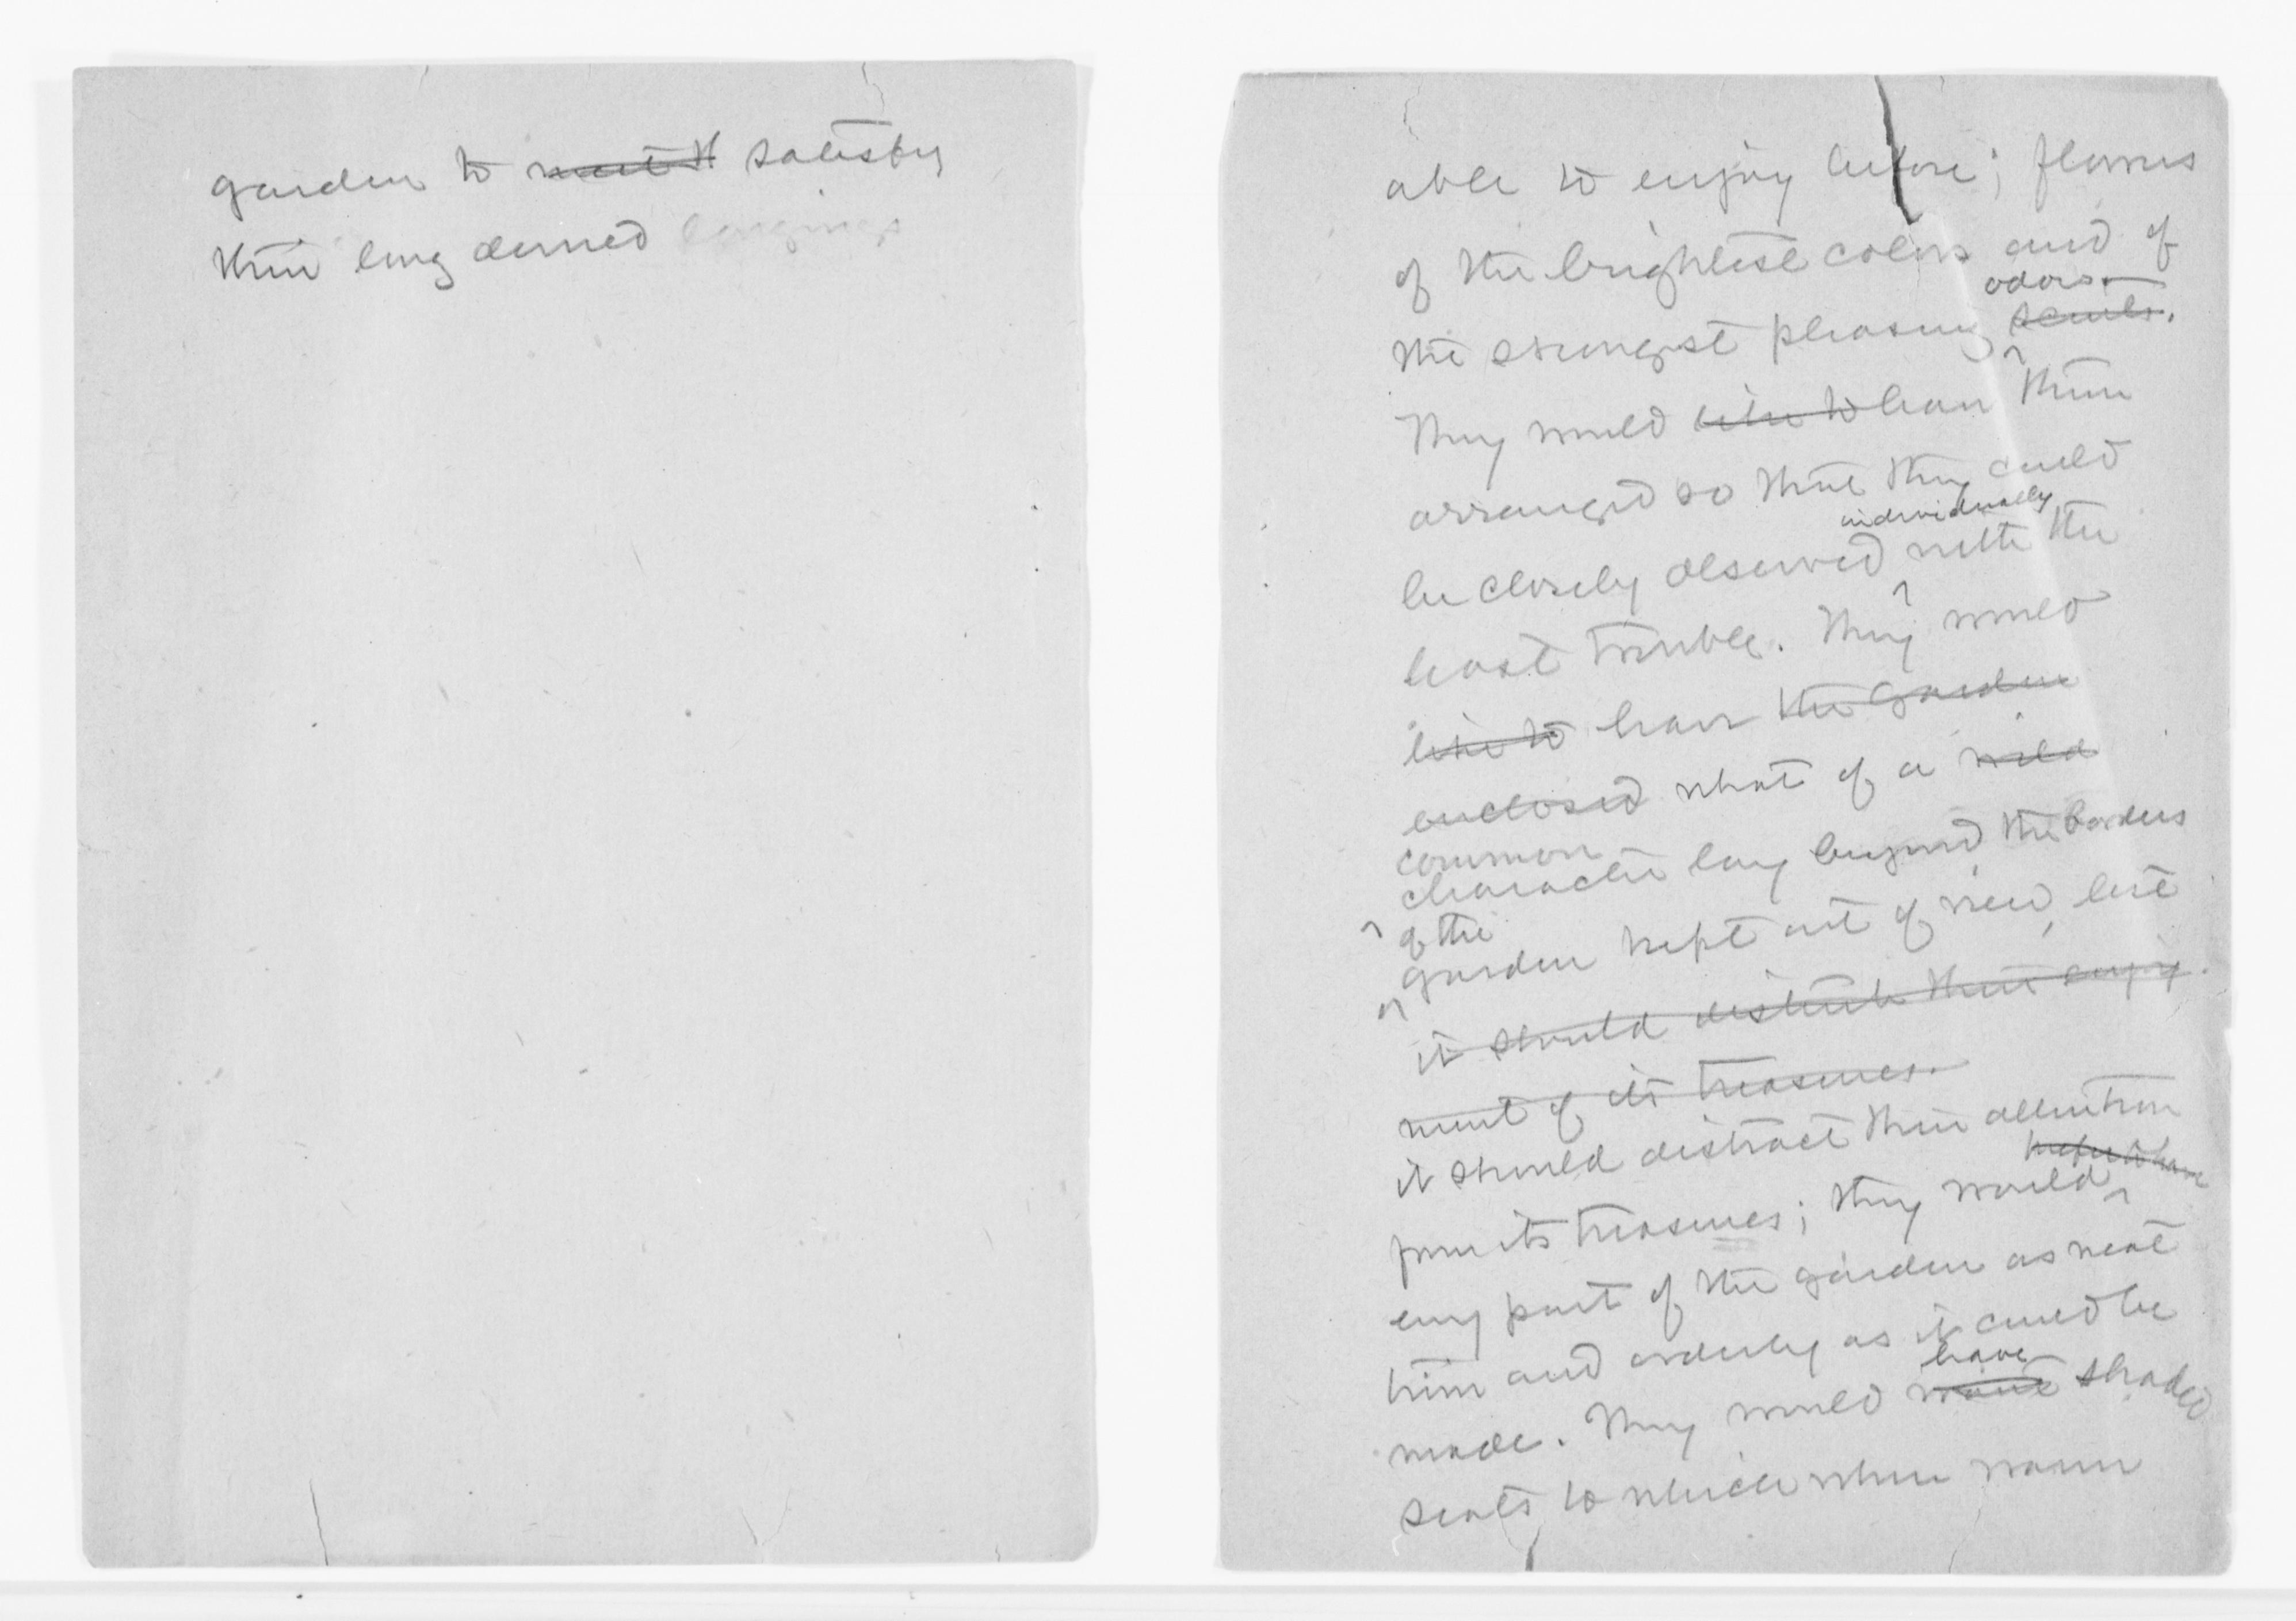 garden to meet th satisfy
their long denied longings
able to enjoy before; flowers
of the brightest colors and of
odors
the strongest pleasing scents.
They would like to have them
arranged so that they could
individually
be closely observed with the
least trouble. They would
like to have the garden
enclosed what of a wild
common
character lay beyond the borders
of the
garden kept out of view, lest
it should disturb their enjoy-
ment of its treasures.
it should distract their attention
prefer to have
from its treasures; they would
every part of the garden as neat
trim and orderly as it could be
have
made. They would want shaded
seats to which when warm